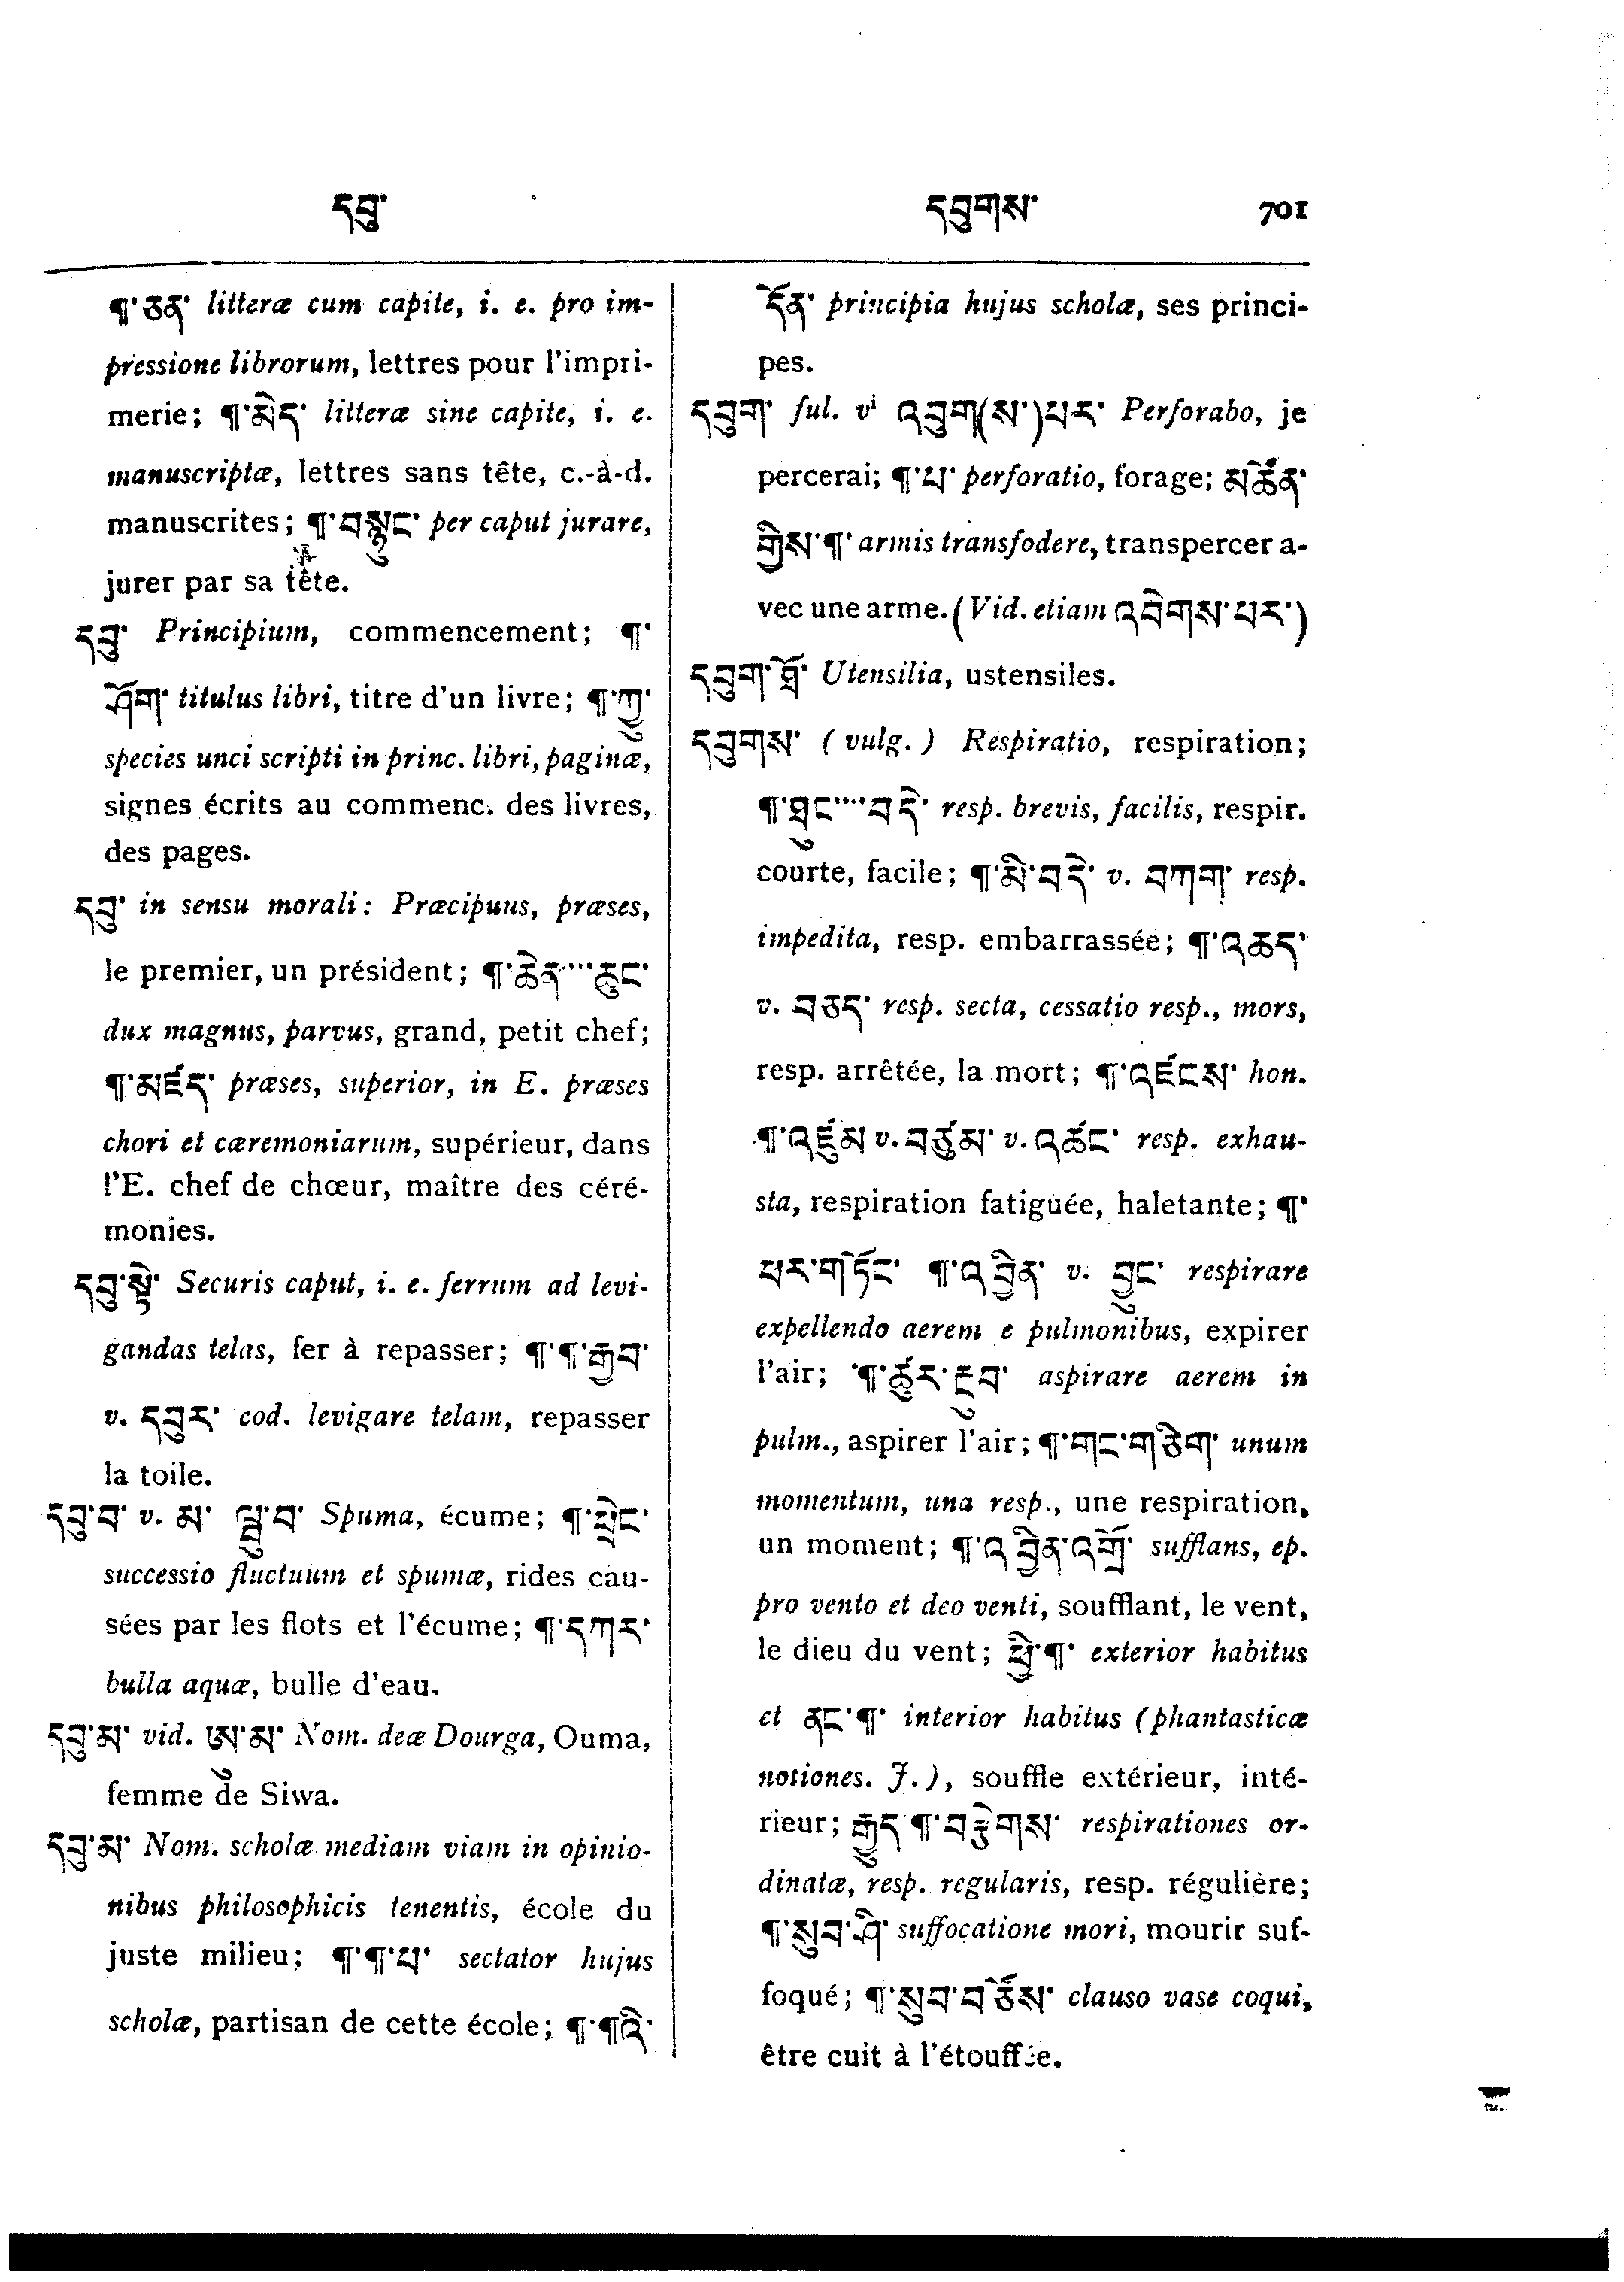 དབུ་ དབུགས་ 701
¶་ཅན་ litteræ cum capite, i. e. pro im-
pressione librorum, lettres pour l'impri-
merie; ¶་མེད་ litteræ sine capite, i. e.
manuscriptæ, lettres sans tête, c.-à-d.
manuscrites; ¶་བསྙུང་ per caput jurare,
jurer par sa tête.
དབུ་ Principium, commencement; ¶་
ཤོག་ titulus libri, titre d'un livre; ¶་ཀྱུ་
species unci scripti in princ. libri, paginæ,
signes écrits au commenc. des livres,
des pages.
དབུ་ in sensu morali: Præcipuus, præses,
le premier, un président; ¶་ཆེན་···ཆུང་
dux magnus, parvus, grand, petit chef;
¶་མཛད་ præses, superior, in E. præses
chori et cæremoniarum, supérieur, dans
l'E. chef de chœur, maître des céré-
monies.
དབུ་སྟེ་ Securis caput, i. e. ferrum ad levi-
gandas telas, fer à repasser; ¶་¶་རྒྱབ་
v. དབུར་ cod. levigare telam, repasser
la toile.
དབུ་བ་ v. མ་ ལྦུ་བ་ Spuma, écume; ¶་ཕྲེང་
successio fluctuum et spumæ, rides cau-
sées par les flots et l'écume; ¶་དཀར་
bulla aquæ, bulle d'eau.
དབུ་མ་ vid. ཨུ་མ་ Nom. deæ Dourga, Ouma,
femme de Siwa.
དབུ་མ་ Nom. scholæ mediam viam in opinio-
nibus philosophicis tenentis, école du
juste milieu; ¶་¶་པ་ sectator hujus
scholæ, partisan de cette école; ¶་¶འི་
དོན་ principia hujus scholæ, ses princi-
pes.
དབུག་ ful. vi འབུག(ས་)པར་ Perforabo, je
percerai; ¶་པ་ perforatio, forage; མཚོན་
གྱིས་¶་ armis transfodere, transpercer a-
vec une arme. (Vid. etiam འབིགས་པར་)
དབུག་ཐོ་ Utensilia, ustensiles.
དབུགས་ (vulg.) Respiratio, respiration;
¶་ཐུང་···བདེ་ resp. brevis, facilis, respir.
courte, facile; ¶་མི་བདེ་ v. བཀག་ resp.
impedita, resp. embarrassée; ¶་འཆད་
v. བཅད་ resp. secta, cessatio resp., mors,
resp. arrêtée, la mort; ¶་འཛངས་ hon.
¶་འཛུམ v. བཙུམ་ v. འཚང་ resp. exhau-
sta, respiration fatiguée, haletante; ¶་
ཕར་གཏོང་ ¶་འབྱིན་ v. བྱུང་ respirare
expellendo aerem e pulmonibus, expirer
l'air; ¶་ཚུར་རྔུབ་ aspirare aerem in
pulm., aspirer l'air; ¶་གང་གཅིག་ unum
momentum, una resp., une respiration,
un moment; ¶་འབྱིན་འགྲོ་ sufflans, ep.
pro vento et deo venti, soufflant, le vent,
le dieu du vent; ཕྱི་¶་ exterior habitus
et ནང་¶་ interior habitus (phantasticæ
notiones. J.), souffle extérieur, inté-
rieur; རྒྱུད ¶་བརྩེགས་ respirationes or-
dinatæ, resp. regularis, resp. régulière;
¶་སུབ་ཤི་ suffocatione mori, mourir suf-
foqué; ¶་སུབ་བཙོས་ clauso vase coqui,
être cuit à l'étouffée.